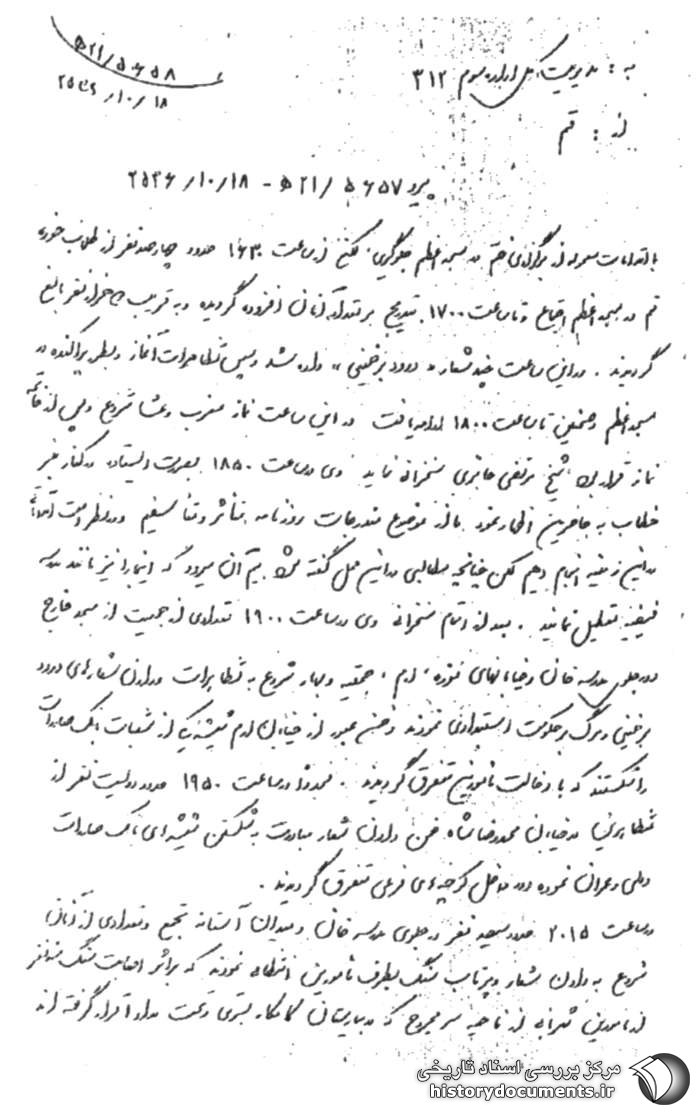 ۵۲۱/۵۶۵۸
۲۵۳۶/۱۰/۱۸
به : مدیریت کل اداره سوم ۳۱۲
از : قم
پیرو ۵۶۵۷ / ۵۲۱ - ۲۵۳۶/۱۰/۱۸
با اقدامات معموله از برگزاری ختم در مسجد اعظم جلوگیری، لکن از ساعت ۱۶۳۰ حدود چهارصد نفر از طلاب حوزه
قم در مسجد اعظم اجتماع و تا ساعت ۱۷۰۰ بتدریج بر تعداد آنان افزوده گردیده و به قریب هزار نفر بالغ
گردیدند . در این ساعت چند شعار « درود بر خمینی » داده شد و سپس تظاهرات آغاز و بطور پراکنده در
مسجد اعظم و صحنین تا ساعت ۱۸۰۰ ادامه یافت در این ساعت نماز مغرب و عشا شروع و پس از خاتمه
نماز قرار بود شیخ مرتضی حائری سخنرانی نماید وی در ساعت ۱۸۵۰ بصورت ایستاده در کنار منبر
خطاب به حاضرین اظهار نمود ما از موضوع مندرجات روزنامه متأثر و متأسفیم و در نظر است اقداماتی
در این زمینه انجام دهیم لکن چنانچه مطالبی در این محل گفته شود بیم آن میرود که اینجا را نیز مانند مدرسه
فیضیه تعطیل نمایند . بعد از اتمام سخنرانی وی در ساعت ۱۹۰۰ تعدادی از جمعیت از مسجد خارج
و در جلو مدرسه خان و خیابانهای موزه ، ارم ، چهارمردان شروع به تظاهرات و دادن شعارهای درود
بر خمینی و مرگ بر حکومت استبدادی نمودند و ضمن عبور از خیابان ارم شیشه یکی از شعبات بانک صادرات
را شکستند که با دخالت مأمورین متفرق گردیدند . مجدداً در ساعت ۱۹۵۰ حدود دویست نفر از
تظاهرکنندگان در خیابان محمدرضا شاه ضمن دادن شعار مبادرت به شکستن شیشه‌های بانک صادرات
و ملی و عمران نموده و در داخل کوچه‌های فرعی متفرق گردیدند .
در ساعت ۲۰۱۵ حدود سیصد نفر در جلوی مدرسه خان و میدان آستانه تجمع و تعدادی از آنان
شروع به دادن شعار و پرتاب سنگ بطرف مأمورین انتظامی نمودند که بر اثر اصابت سنگ سه نفر
از مأمورین شهربانی از ناحیه سر مجروح که در بیمارستان کامکار بستری و تحت مداوا قرار گرفته اند
مرکز بررسی اسناد تاریخی
historydocuments.ir